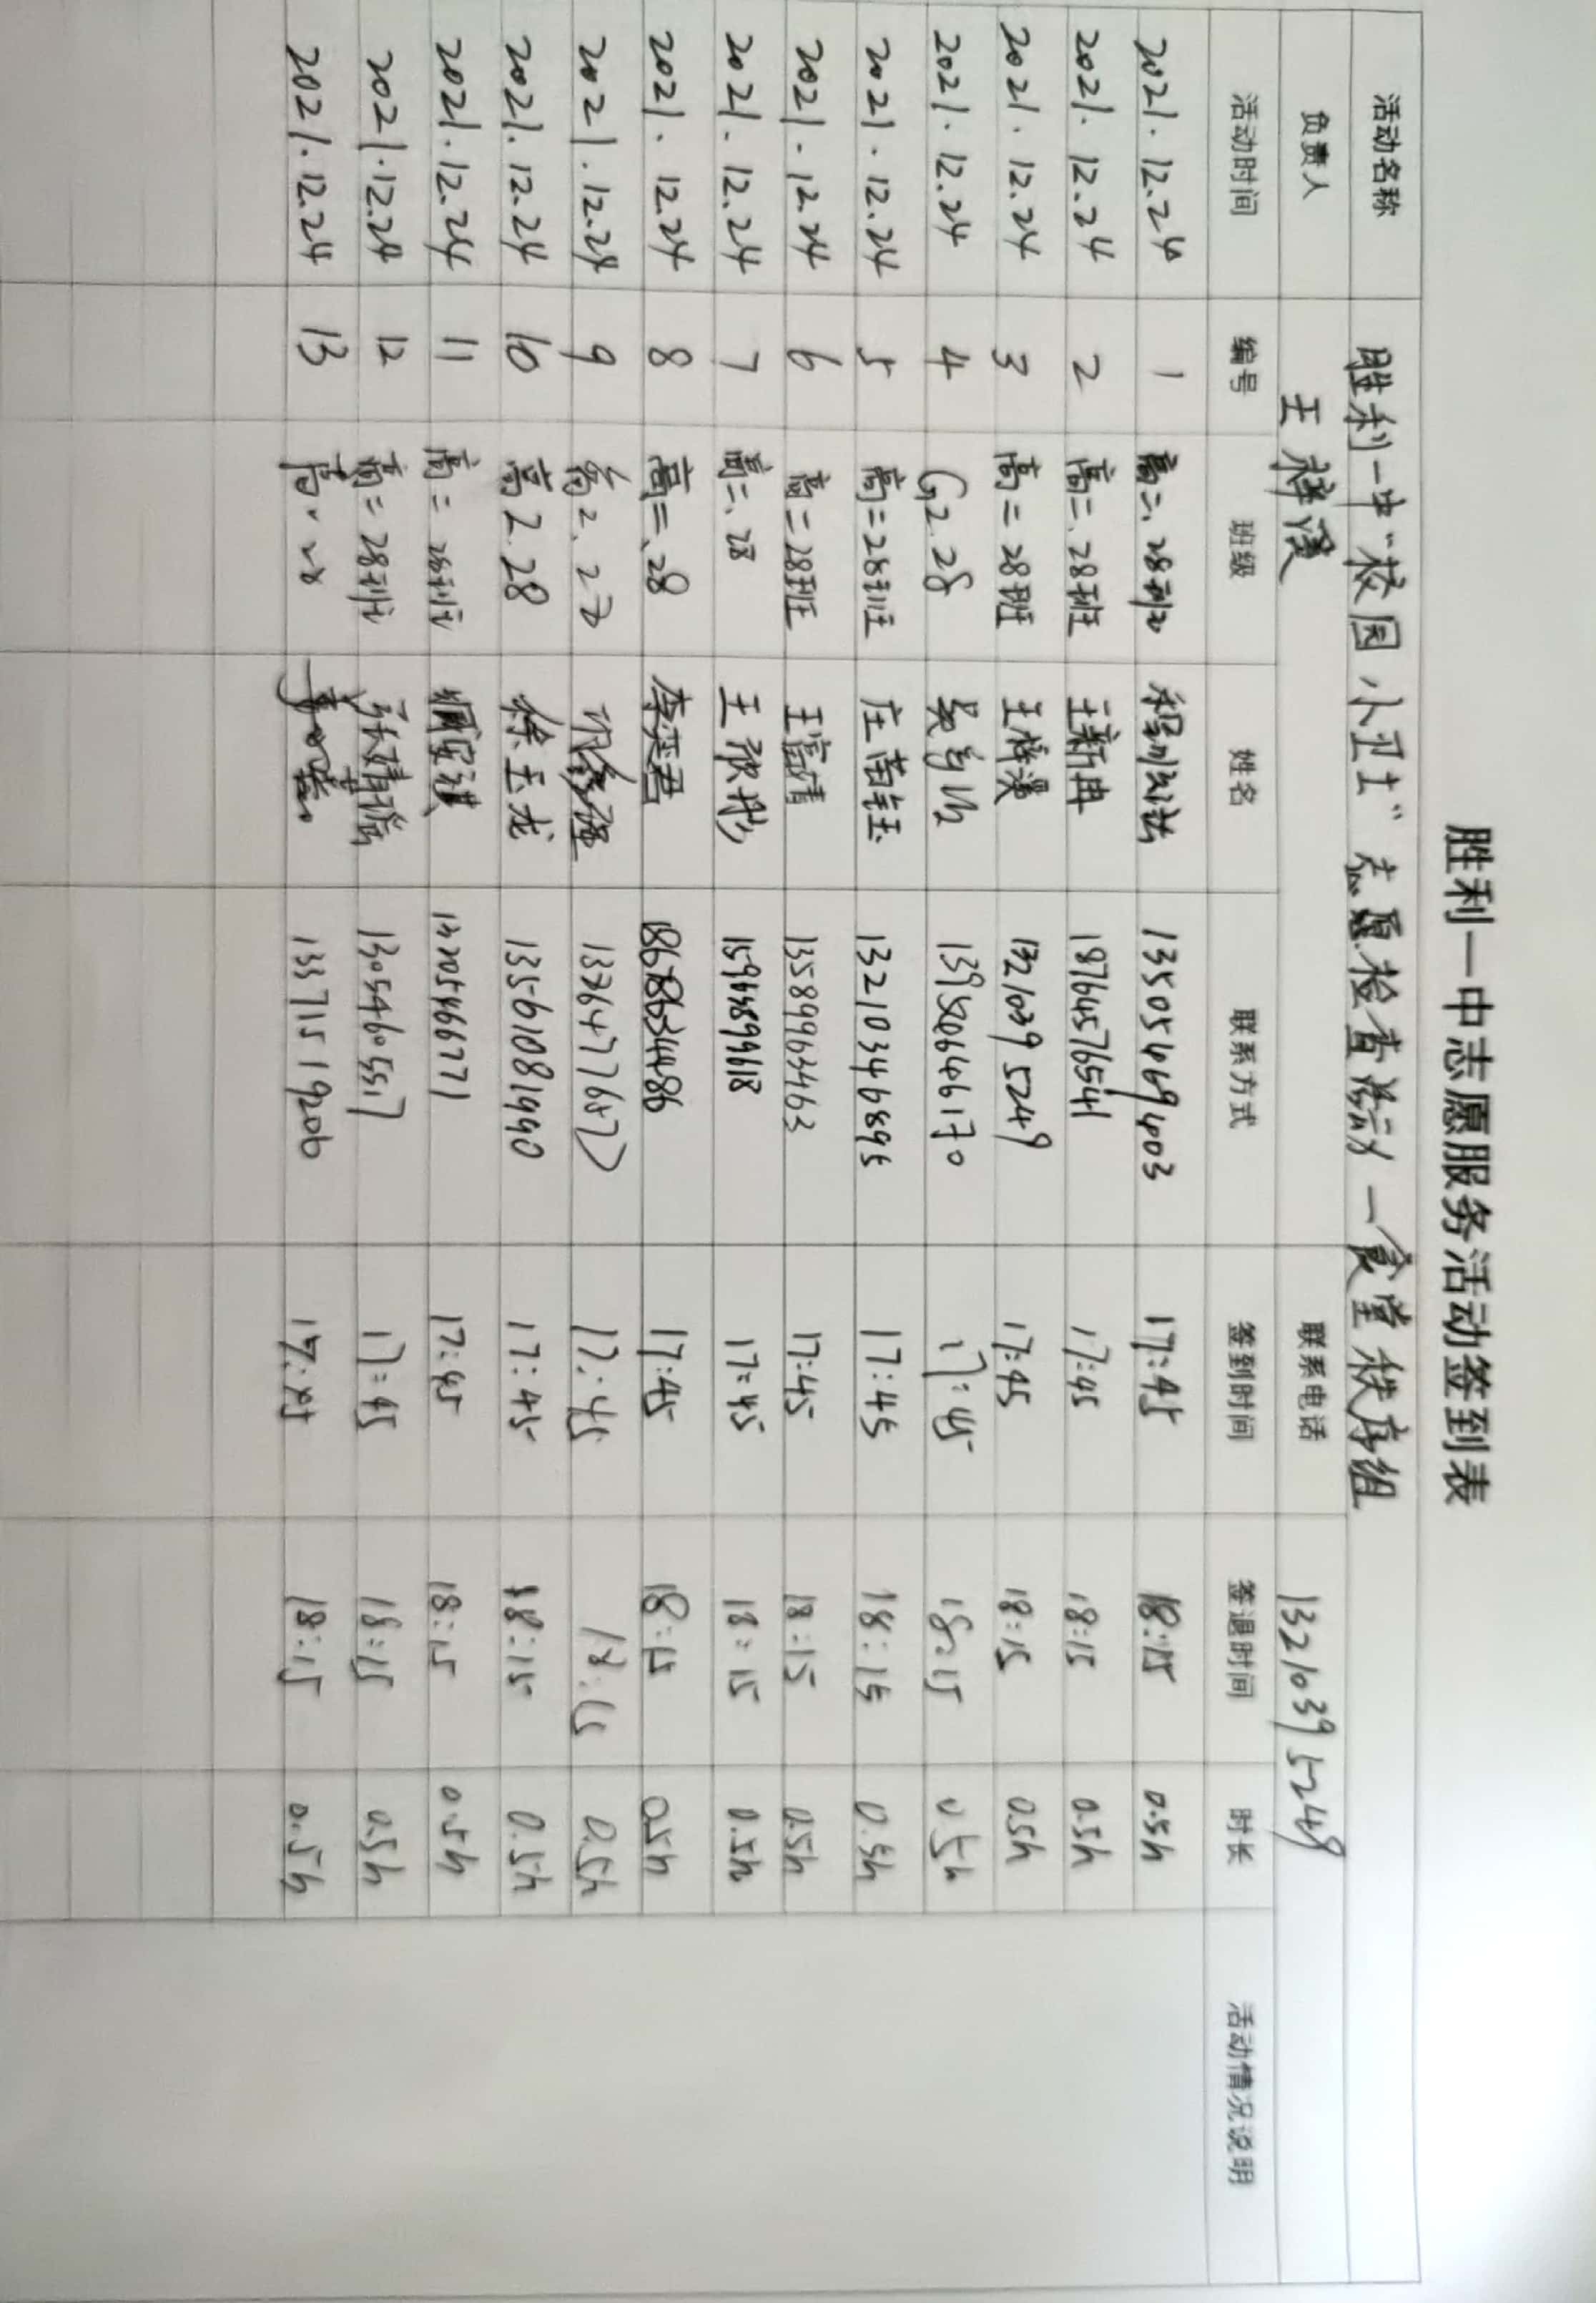 胜利一中志愿服务活动签到表
活动名称 胜利一中"校园小卫士"志愿检查活动—食堂秩序组
负责人 王梓溪 联系电话 13210395249
活动时间 编号 班级 姓名 联系方式 签到时间 签退时间 时长 活动情况说明
2021.12.24 1 高二、28班 13505469403 17:45 18:15 0.5h
2021.12.24 2 高二、28班 王新冉 18764576541 17:45 18:15 0.5h
2021.12.24 3 高二28班 王梓溪 13210395249 17:45 18:15 0.5h
2021.12.24 4 G2.28 17:45 18:15 0.5h
2021.12.24 5 高二28班 庄苗钰 13210346895 17:45 18:15 0.5h
2021.12.24 6 高二28班 王富倩 13589963463 17:45 18:15 0.5h
2021.12.24 7 高二、28 王 17:45 18:15 0.5h
2021.12.24 8 高二、28 李奕君 18678634486 17:45 18:15 0.5h
2021.12.24 9 高2、27 17:45 18:15 0.5h
2021.12.24 10 高2.28 徐玉龙 13561081990 17:45 18:15 0.5h
2021.12.24 11 高二 28班 17:45 18:15 0.5h
2021.12.24 12 高二28班 13054605517 17:45 18:15 0.5h
2021.12.24 13 13371519206 17:45 18:15 0.5h